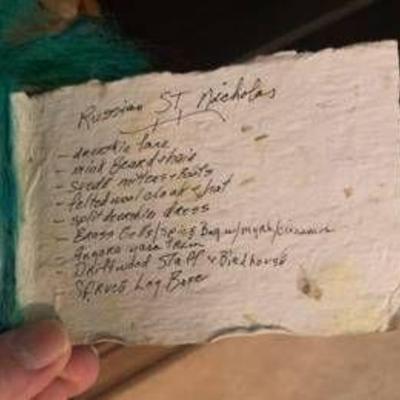 Russian St. Nicholas
- deerskin face
- mink beard + hair
- suede mittens + boots
- felted wool cloak + hat
- split deerskin dress
- Brass Bells/Spice Bag w/myrrh/cinnamon
- Angora yarn trim
- Driftwood Staff + Birdhouse
- Spruce Log Base